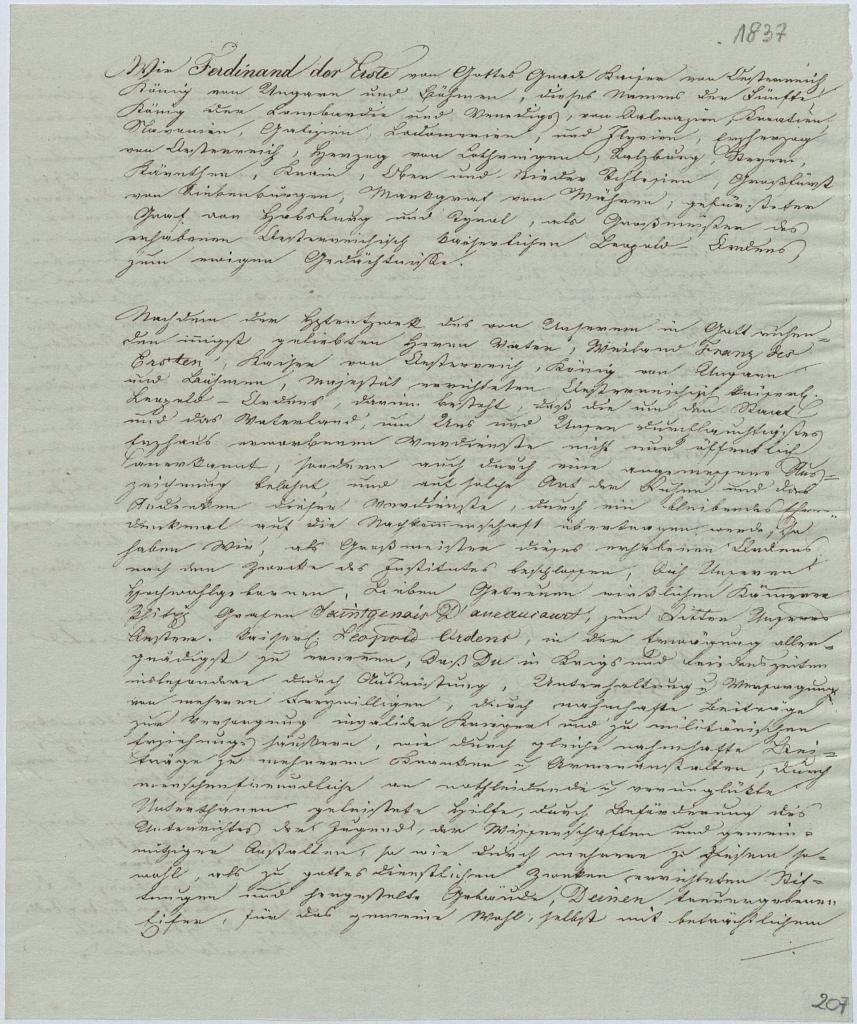 1837
Wir Ferdinand der Erste von Gottes Gnade Kaiser von Oesterreich,
König von Ungarn und Böhmen, dieses Namens der Fünfte,
König der Lombardie und Venedigs, von Dalmazien, Kroatien,
Slavonien, Galizien, Lodomerien, und Illyrien, Erzherzog
von Oesterreich, Herzog von Lothringen, Salzburg, Steyer,
Kärnthen, Krain, Ober und Nieder Schlesien, Großfürst
von Siebenbürgen, Markgraf von Mähren, gefürsteter
Graf von Habsburg und Tyrol, als Großmeister des
erhabenen Oesterreichisch kaiserlichen Leopold-Ordens
zum ewigen Gedächtnisse.
Nachdem der des von Unserem in Gott ruhen-
den innigst geliebten Herrn Vater, Weiland Franz des
Ersten, Kaiser von Oesterreich, König von Ungarn
und Böhmen, Majestät errichteten Oesterreichisch kaiserl.
Leopold-Ordens, darin besteht, daß die um den Staat
und das Vaterland, um Uns und Unser durchlauchtigstes
Erzhaus erworbenen Verdienste nicht nur öffentlich
anerkannt, sondern auch durch eine angemessene Aus-
zeichnung belohnt, und auf solche Art der Ruhm und das
Andenken dieser Verdienste, durch ein bleibendes Ehren-
denkmal auf die Nachkommenschaft übertragen werde, so
haben Wir, als Großmeister dieses erhabenen Ordens
nach dem Zwecke des Institutes beschlossen, Unseren
Hochwohlgebornen, Lieben Getreuen wirklichen Kämmerer
Philip Grafen Saintgenois D'aneaucourt, zum Ritter Unseres
Oesterr. kaiserl. Leopold Ordens, in der Erwägung aller-
gnädigst zu ernennen, daß Du in Kriegs und Friedenszeiten
insbesondere durch Ausrüstung, Unterhaltung u Versorgung
von mehrern Freywilligen, durch nahmhafte Beiträge
zur Versorgung invalider Krieger und zu militärischen
Erziehungshäußern, wie durch gleiche nahmhafte Bei-
träge zu mehreren Kranken u Armenanstalten, durch
menschenfreundliche an nothleidende u verunglükte
Unterthanen geleistete Hilfe, durch Beförderung des
Unterrichtes der Jugend, der Wissenschaften und gemein-
nütziger Anstalten, so wie durch mehrere zu diesem so-
wohl, als zu gottesdienstlichen Zweken errichteten Stif-
tungen und hergestellte Gebäude, Deinen treuergebenen
Eifer, für das gemeine Wohl, selbst mit beträchtlichem
207